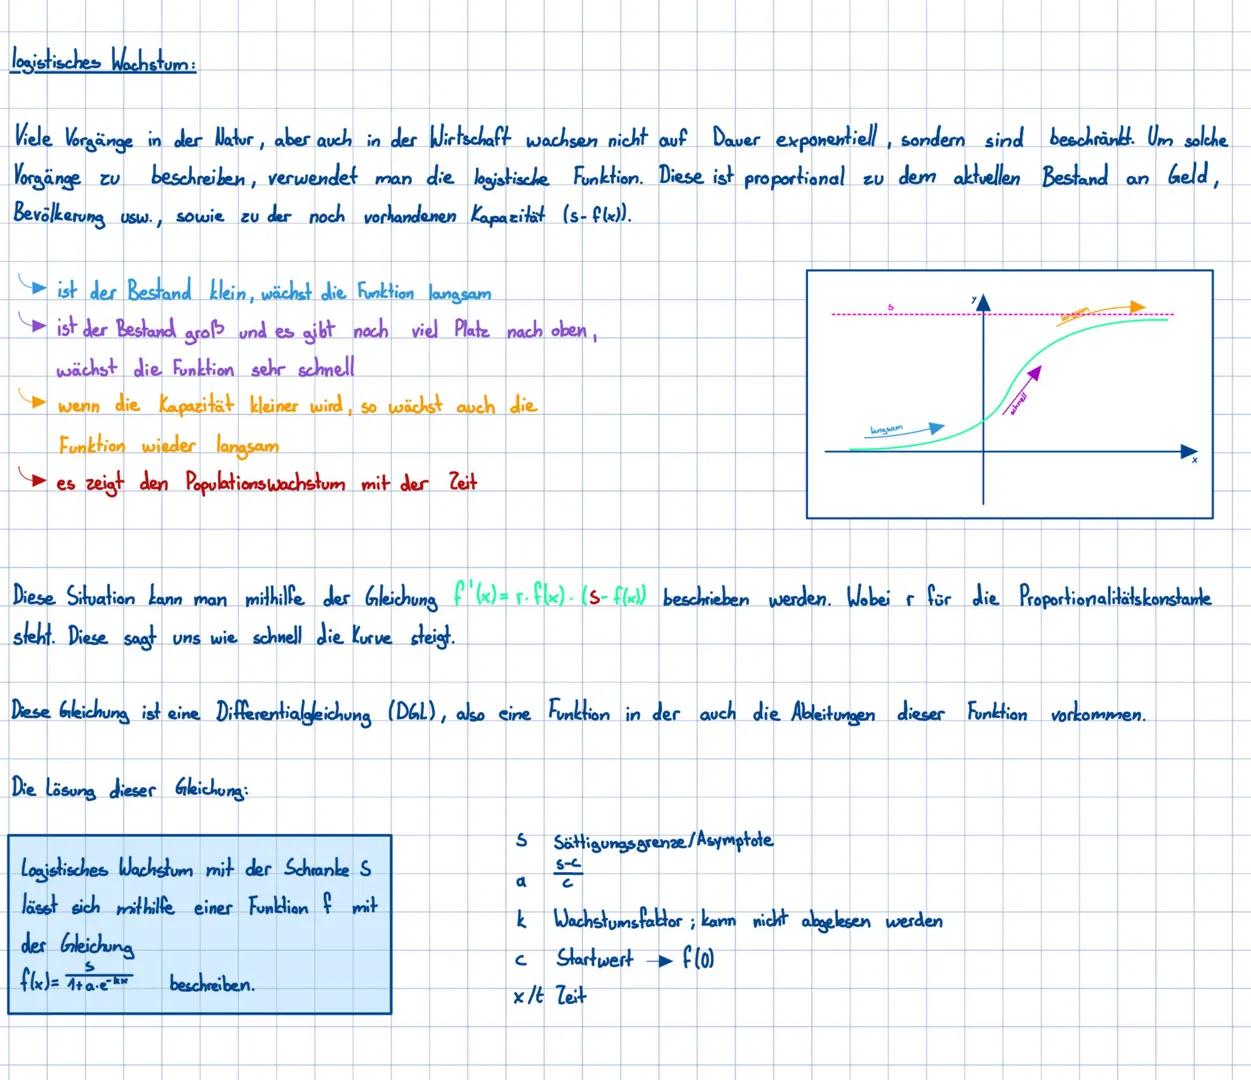 logistisches Wachstum:
Viele Vorgänge in der Natur, aber auch in der Wirtschaft wachsen nicht auf Dauer exponentiell, sondern sind beschränkt. Um solche
Vorgänge zu beschreiben, verwendet man die logistische Funktion. Diese ist proportional zu dem aktuellen Bestand an Geld,
Bevölkerung usw., sowie zu der noch vorhandenen Kapazität (s-f(x)).
ist der Bestand klein, wächst die Funktion langsam
ist der Bestand groß und es gibt noch viel Platz nach oben,
wächst die Funktion sehr schnell
wenn die Kapazität kleiner wird, so wächst auch die
Funktion wieder langsam
es zeigt den Populationswachstum mit der Zeit
s
y
langsam
schnell
langsam
x
Diese Situation kann man mithilfe der Gleichung f'(x)= r·f(x)·(s-f(x)) beschrieben werden. Wobei r für die Proportionalitätskonstante
steht. Diese sagt uns wie schnell die Kurve steigt.
Diese Gleichung ist eine Differentialgleichung (DGL), also eine Funktion in der auch die Ableitungen dieser Funktion vorkommen.
Die Lösung dieser Gleichung:
Logistisches Wachstum mit der Schranke S
lässt sich mithilfe einer Funktion f mit
der Gleichung
f(x)= s/(1+a·e^-kx) beschreiben.
S Sättigungsgrenze/Asymptote
a (s-c)/c
k Wachstumsfaktor; kann nicht abgelesen werden
c Startwert → f(0)
x/t Zeit